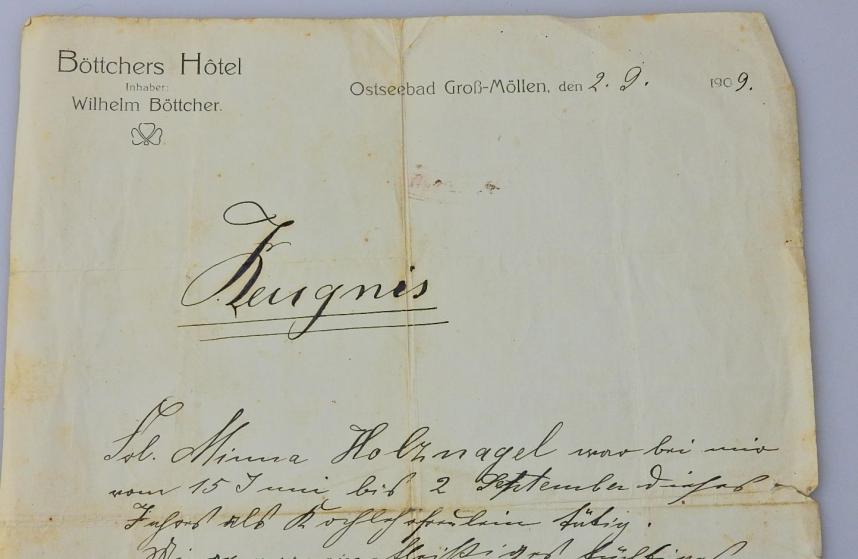 Böttchers Hôtel
Inhaber:
Wilhelm Böttcher.
Ostseebad Groß-Möllen, den 2. 9. 1909.
Zeugnis
Frl. Minna Holznagel war bei mir
vom 15 Juni bis 2 September dieses
Jahres als Kochlehrfräulein tätig.